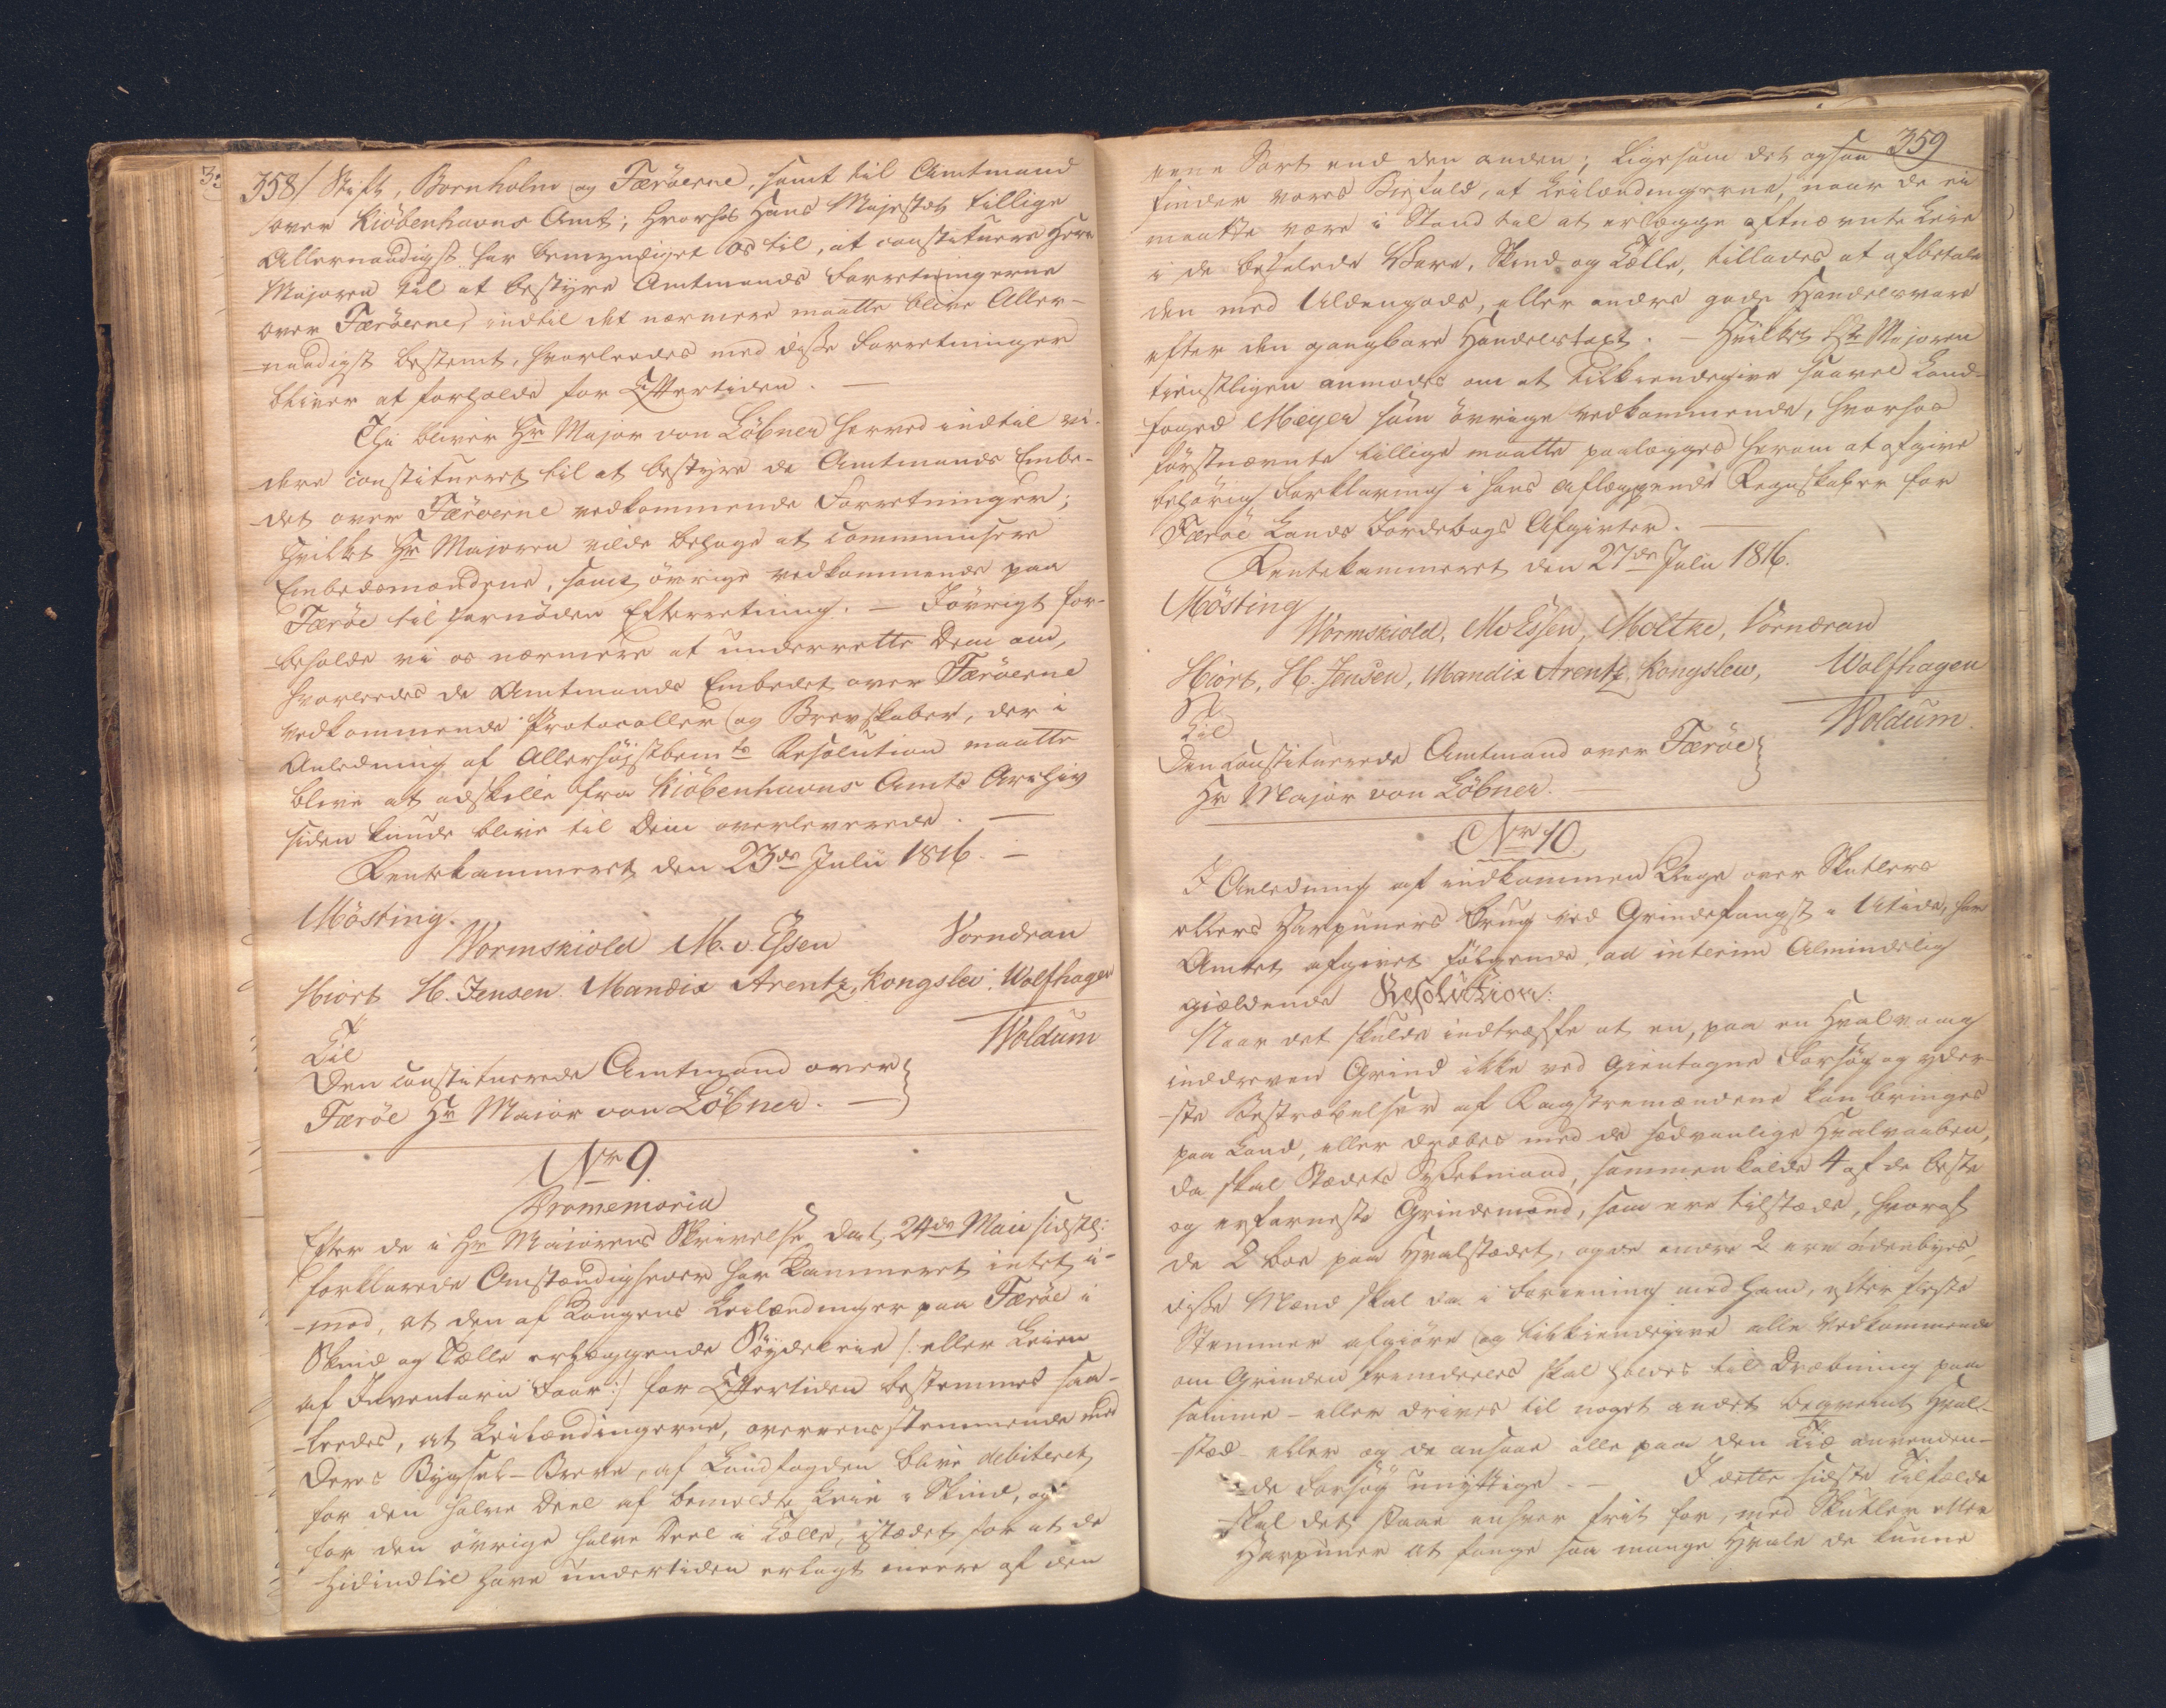 358/ Stift, Bornholm og Færöerne, samt til Amtmand
over Kiöbenhavns Amt; hvorhos Hans Majestæt tillige
Allernaadigst har bemyndiget os til, at constituere Herr
Majoren til at bestyre Amtmands Forretningerne
over Færöerne, indtil det nærmere maatte blive Aller-
naadigst bestemt, hvorledes med disse Forretninger
bliver at forholde for Eftertiden. —
Thi bliver Hr Major von Löbner herved indtil vi-
dere constitueret til at bestyre de Amtmands Embe-
det over Færöerne vedkommende Forretninger;
hvilket Hr Majoren vilde behage at communisere
Embedsmændene, samt övrige vedkommende paa
Færöe til fornöden Efterretning. — Iövrigt for-
beholde vi os nærmere at underrette Dem om,
hvorledes de Amtmands Embedet over Færöerne
vedkommende Protocoller og Brevskaber, der i
Anledning af Allerhöjstbemte Resolution maatte
blive at adskille fra Kiöbenhavns Amts Archiv
siden kunde blive til Dem overleverede. —
Rentekammeret den 23de Julii 1816. —
Mösting.
Wormskiold M. v. Essen Vorndran
Hiort H. Jensen. Mandix Arentz, Kongslev, Wolfhagen
Woldum
Til
Den constituerede Amtmand over
Færöe Hr Maior von Löbner. —
Nr 9.
Promemoria
Efter de i Hr Maiorens Skrivelse dat. 24de Maii sidstl:
forklarede Omstændigheder har Kammeret intet i-
mod, at den af Kongens Leilændinger paa Færöe i
Skind og Tælle erlæggende Söydeleie /: eller Leien
af Inventarii Faar :/ for Eftertiden bestemmes saa-
ledes, at Leilændingerne, overeensstemmende med
deres Bygsel-Breve, af Landfogden blive debiteret
for den halve Deel af bemeldte Leie i Skind, og
for den övrige halve Deel i Tælle, istædet for at de
hidindtil have undertiden erlagt meere af den
359
eene Sort end den anden; ligesom det ogsaa
finder vores Biefald, at Leilændingerne, naar de ei
maatte være i Stand til at erlægge oftnævnte Leie
i de befalede Vare, Skind og Tælle, tillades at afbetale
den med Uldengods, eller andre gode Handelsvare
efter den gangbare Handelstaxt. — Hvilket Hr Majoren
tienstligen anmodes om at tilkiendegive saavel Land-
foged Meyer som övrige vedkommende, hvorhos
förstnævnte tillige maatte paalægges herom at afgive
behörig Forklaring i hans aflæggende Regnskaber for
Færöe Lands Jordebogs Afgivter. —
Rentekammeret den 27de Julii 1816.
Mösting
Wormskiold, M v Essen, Moltke, Vorndran
Hiort, H. Jensen, Mandix Arentz, Kongslew, Wolfhagen
Woldum.
Til
Den constituerede Amtmand over Færöe
Hr Major von Löbner. —
Nr 10
I Anledning af indkommen Klage over Skutlers
ellers Harpuners Brug ved Grindefangst i Utide, har
Amtet afgivet fölgende, ad interim Almindelig
gieldende Resolution:
Naar det skulde indtræffe at en, paa en Hvalvaag
inddreven Grind ikke ved gientagne Forsög og yder-
ste Bestræbelser af Kagstremændene kan bringes
paa Land, eller dræbes med de sædvanlige Hvalvaaben,
da skal Stædets Sysselmand, sammenkalde 4 af de beste
og erfarneste Grindemænd, som ere tilstæde, hvoraf
de 2 boe paa Hvalstædet, og de andre 2 ere udenbyes,
disse Mænd skal da i Foreening med ham, efter fleste
Stemmer afgiöre og tilkiendegive alle Vedkommende
om Grinden fremdeeles skal holdes til Dræbning paa
samme - eller drives til noget andet beqvemt Hval-
stæd - eller og de ansaae alle paa den Tid anvenden-
de Forsög unyttige. — I dette sidste Tilfælde
skal det staae enhver frit for, med Skutler eller
Harpuner at fange saa mange Hvale de kunne